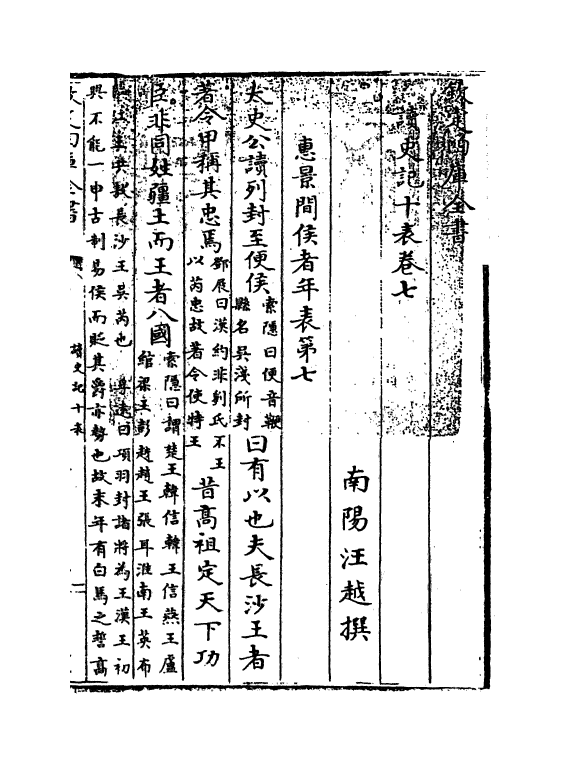 欽定四庫全書
讀史記十表卷七
南陽汪越撰
惠景間侯者年表第七
太史公讀列封至便侯索隱曰便音鞭縣名吳淺所封曰有以也夫長沙王者
著令甲稱其忠焉鄧展曰漢約非劉氏不王以芮忠故著令使特王昔高祖定天下功
臣非同姓疆土而王者八國索隱曰謂楚王韓信韓王信燕王盧綰梁王彭越趙王張耳淮南王英布
臨江王共敖長沙王吳芮也尊遠曰項羽封諸將為王漢王初
興不能一申古制易侯而貶其爵亦勢也故末年有白馬之誓高
讀史記十表